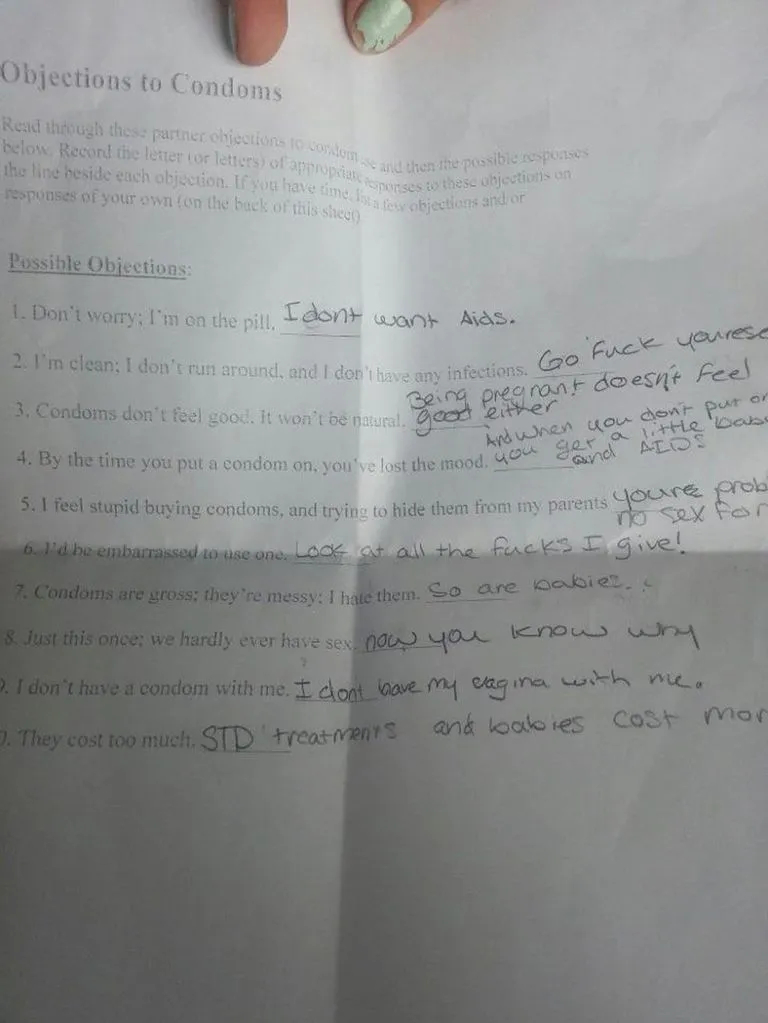 Objections to Condoms
Read through these partner objections to condom use and then the possible responses
below. Record the letter (or letters) of appropriate responses to these objections on
the line beside each objection. If you have time, list a few objections and/or
responses of your own (on the back of this sheet)
Possible Objections:
1. Don't worry; I'm on the pill. I dont want Aids.
2. I'm clean; I don't run around, and I don't have any infections. Go Fuck yourese
3. Condoms don't feel good. It won't be natural. Being pregnant doesn't feel
good either
4. By the time you put a condom on, you've lost the mood. And when you don't put on
you get a little bab
and AIDS
5. I feel stupid buying condoms, and trying to hide them from my parents youre prob
no sex for
6. I'd be embarrassed to use one. Look at all the fucks I give!
7. Condoms are gross; they're messy; I hate them. So are babies.
8. Just this once; we hardly ever have sex. now you know why
9. I don't have a condom with me. I dont have my vagina with me.
0. They cost too much. STD treatments and babies cost mor